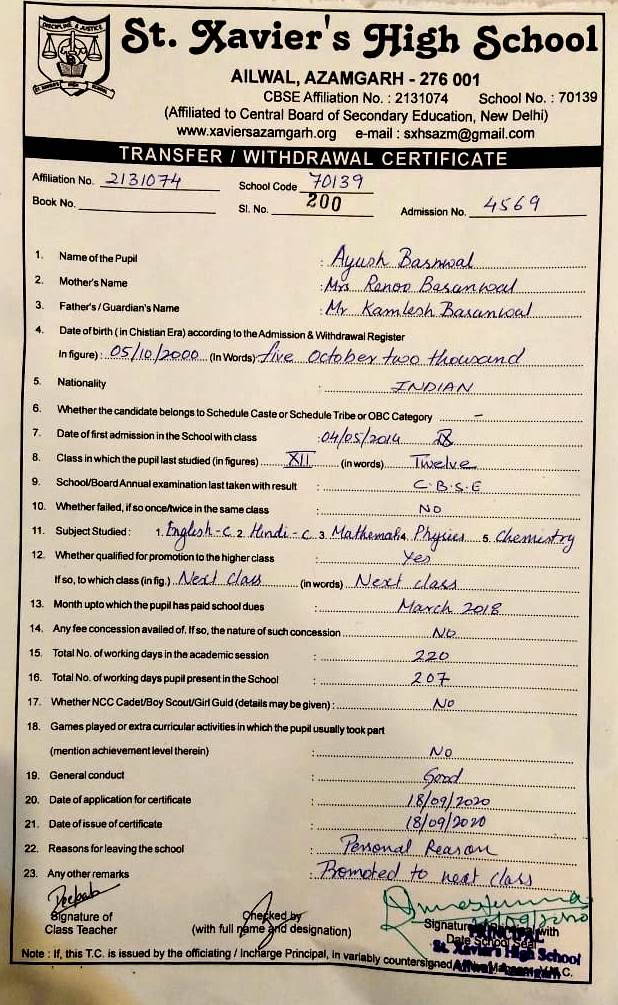 DISCIPLINE & JUSTICE
ST. XAVIER'S HIGH SCHOOL
St. Xavier's High School
AILWAL, AZAMGARH - 276 001
CBSE Affiliation No. : 2131074 School No. : 70139
(Affiliated to Central Board of Secondary Education, New Delhi)
www.xaviersazamgarh.org e-mail : sxhsazm@gmail.com
TRANSFER / WITHDRAWAL CERTIFICATE
Affiliation No. 2131074 School Code 70139
Book No. Sl. No. 200 Admission No. 4569
1. Name of the Pupil : Ayush Barnwal
2. Mother's Name : Mrs Renoo Baranwal
3. Father's / Guardian's Name : Mr Kamlesh Baranwal
4. Date of birth ( in Chistian Era) according to the Admission & Withdrawal Register
In figure) : 05/10/2000 (In Words) five October two thousand
5. Nationality : INDIAN
6. Whether the candidate belongs to Schedule Caste or Schedule Tribe or OBC Category –
7. Date of first admission in the School with class : 04/05/2014 IX
8. Class in which the pupil last studied (in figures) XII (in words) Twelve
9. School/Board Annual examination last taken with result : C.B.S.E
10. Whether failed, if so once/twice in the same class : NO
11. Subject Studied : 1. English-C 2. Hindi-C 3. Mathemati 4. Physics 5. Chemistry
12. Whether qualified for promotion to the higher class : Yes
If so, to which class (in fig.) Next class (in words) Next class
13. Month upto which the pupil has paid school dues : March 2018
14. Any fee concession availed of. If so, the nature of such concession No
15. Total No. of working days in the academic session : 220
16. Total No. of working days pupil present in the School : 207
17. Whether NCC Cadet/Boy Scout/Girl Guid (details may be given) : No
18. Games played or extra curricular activities in which the pupil usually took part
(mention achievement level therein) : No
19. General conduct : Good
20. Date of application for certificate : 18/09/2020
21. Date of issue of certificate : 18/09/2020
22. Reasons for leaving the school : Personal Reason
23. Any other remarks : Promoted to next class
Signature of Checked by Signature with
Class Teacher (with full name and designation) Date School Seal
PRINCIPAL
St. Xavier's High School
Note : If, this T.C. is issued by the officiating / Incharge Principal, in variably countersigned